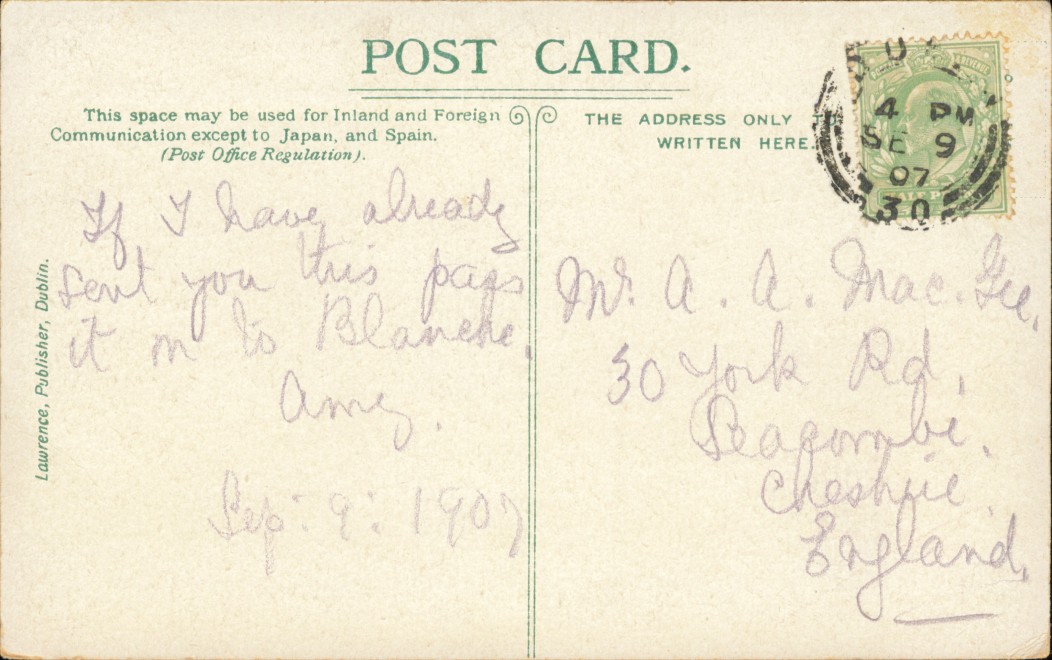 POST CARD.
This space may be used for Inland and Foreign
Communication except to Japan, and Spain.
(Post Office Regulation).
THE ADDRESS ONLY TO
WRITTEN HERE.
4 PM
SE 9
07
30
If I have already
sent you this pass
it on to Blanche.
Amy.
Sep: 9: 1907
Mr. A. A. Mac. Gee,
30 York Rd,
Seacombe.
Cheshire
England,
Lawrence, Publisher, Dublin.